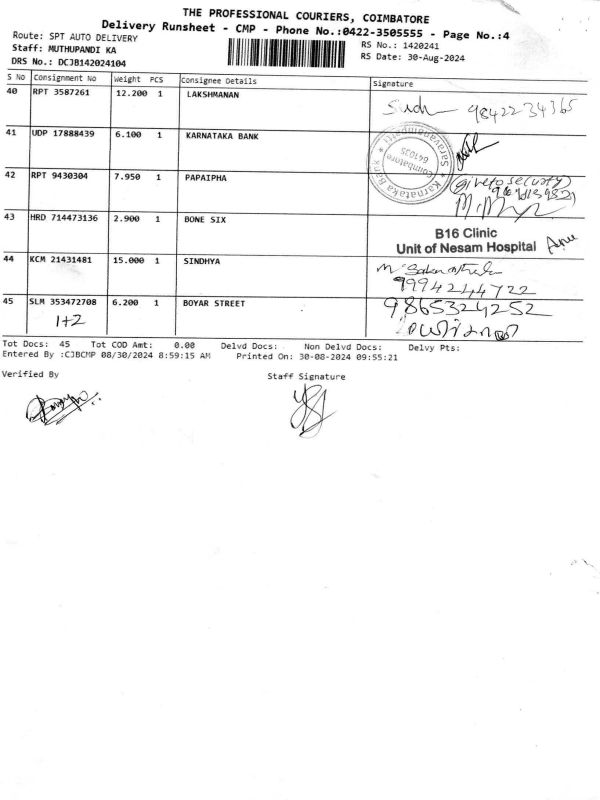 THE PROFESSIONAL COURIERS, COIMBATORE
Delivery Runsheet - CMP - Phone No.:0422-3505555 - Page No.:4
Route: SPT AUTO DELIVERY
RS No.: 1420241
Staff: MUTHUPANDI KA
RS Date: 30-Aug-2024
DRS No.: DCJB142024104
S No Consignment No Weight PCS Consignee Details Signature
40 RPT 3587261 12.200 1 LAKSHMANAN
9842234365
41 UDP 17888439 6.100 1 KARNATAKA BANK
Karnataka Saravanampatti Coimbatore 641035
42 RPT 9430304 7.950 1 PAPAIPHA
(give to security)
43 HRD 714473136 2.900 1 BONE SIX
B16 Clinic
Unit of Nesam Hospital
44 KCM 21431481 15.000 1 SINDHYA
9994244722
45 SLM 353472708 6.200 1 BOYAR STREET
9865324252
1+2
Tot Docs: 45 Tot COD Amt: 0.00 Delvd Docs: Non Delvd Docs: Delvy Pts:
Entered By :CJBCMP 08/30/2024 8:59:15 AM Printed On: 30-08-2024 09:55:21
Verified By Staff Signature